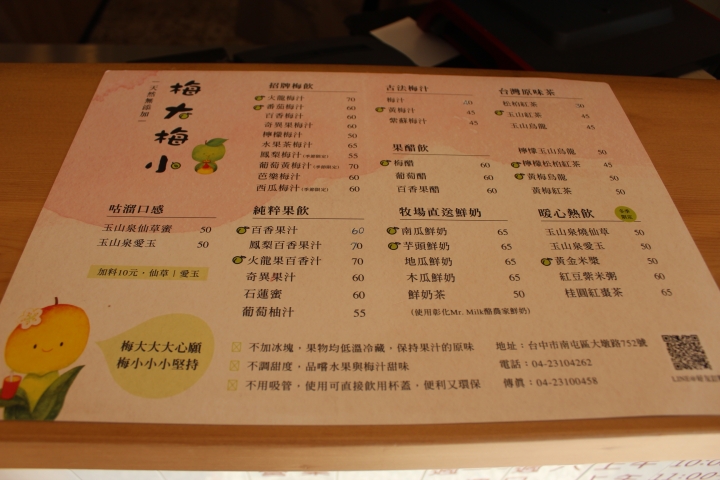 梅大梅小
天然無添加
招牌梅飲
火龍梅汁 70
番茄梅汁 60
百香梅汁 60
奇異果梅汁 60
檸檬梅汁 50
水果茶梅汁 65
鳳梨梅汁(季節限定) 55
葡萄黃梅汁(季節限定) 70
芭樂梅汁 60
西瓜梅汁(季節限定) 60
古法梅汁
梅汁
黃梅汁 45
紫蘇梅汁 45
果醋飲
梅醋 60
葡萄醋 60
百香果醋 60
台灣原味茶
松柏紅茶 30
玉山紅茶 45
玉山烏龍 45
檸檬玉山烏龍 50
檸檬松柏紅茶 45
黃梅烏龍 50
黃梅紅茶 50
咕溜口感
玉山泉仙草蜜 50
玉山泉愛玉 50
加料10元,仙草|愛玉
純粹果飲
百香果汁 60
鳳梨百香果汁 70
火龍果百香汁 70
奇異果汁 60
石蓮蜜 60
葡萄柚汁 55
牧場直送鮮奶
南瓜鮮奶 65
芋頭鮮奶 65
地瓜鮮奶 65
木瓜鮮奶 65
鮮奶茶 50
(使用彰化Mr. Milk酪農家鮮奶)
暖心熱飲
玉山泉燒仙草 50
玉山泉愛玉 50
黃金米漿 50
紅豆紫米粥 60
桂圓紅棗茶 65
梅大大大心願
梅小小小堅持
不加冰塊,果物均低溫冷藏,保持果汁的原味
不調甜度,品嚐水果與梅汁甜味
不用吸管,使用可直接飲用杯蓋,便利又環保
地址:台中市南屯區大墩路752號
電話:04-23104262
傳真:04-23100458